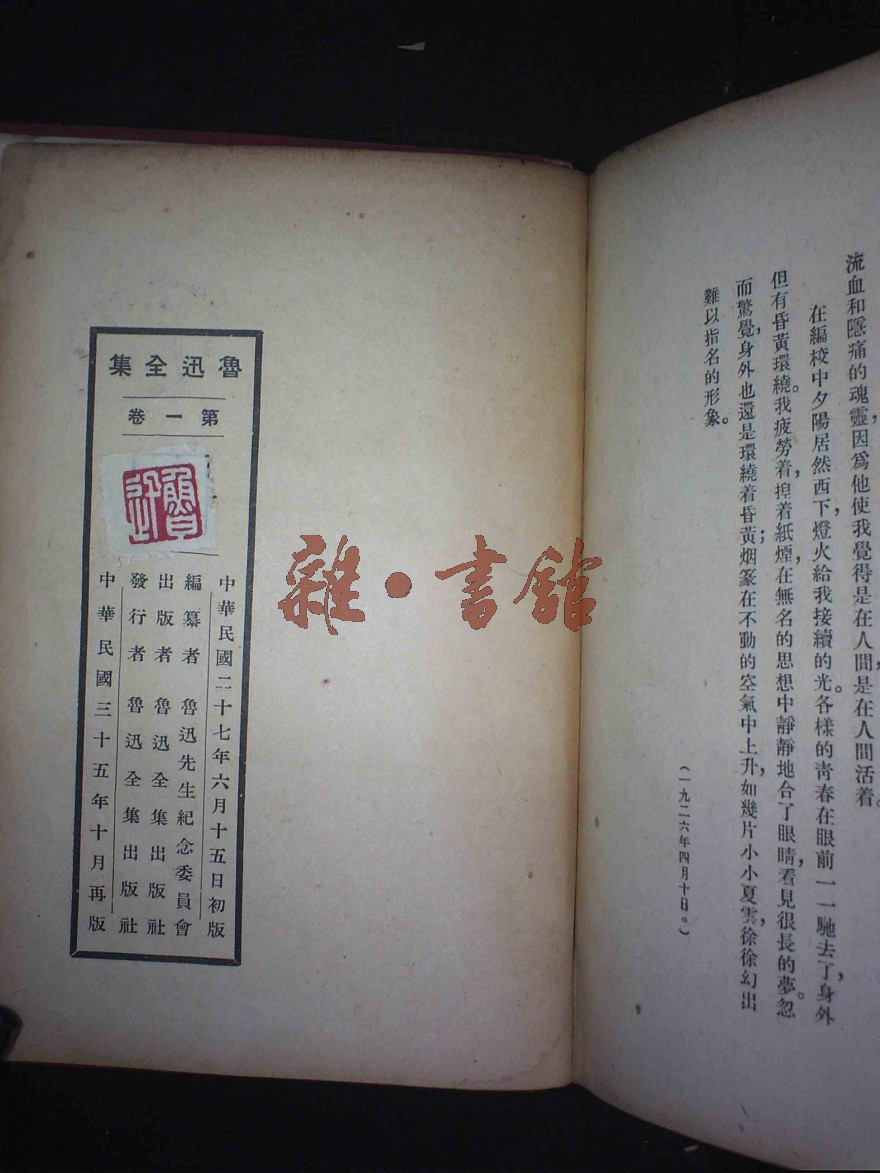 流血和隱痛的魂靈，因爲他使我覺得是在人間，是在人間活着。
在編校中夕陽居然西下，燈火給我接續的光。各樣的青春在眼前一一馳去了，身外
但有昏黃環繞。我疲勞着，捏着紙煙，在無名的思想中靜靜地合了眼睛，看見很長的夢。忽
而驚覺，身外也還是環繞着昏黃；烟篆在不動的空氣中上升，如幾片小小夏雲，徐徐幻出
難以指名的形象。
（一九二六年四月十日。）
魯迅全集
第一卷
魯迅
中華民國二十七年六月十五日初版
編纂者 魯迅先生紀念委員會
出版者 魯迅全集出版社
發行者 魯迅全集出版社
中華民國三十五年十月再版
雜·書館